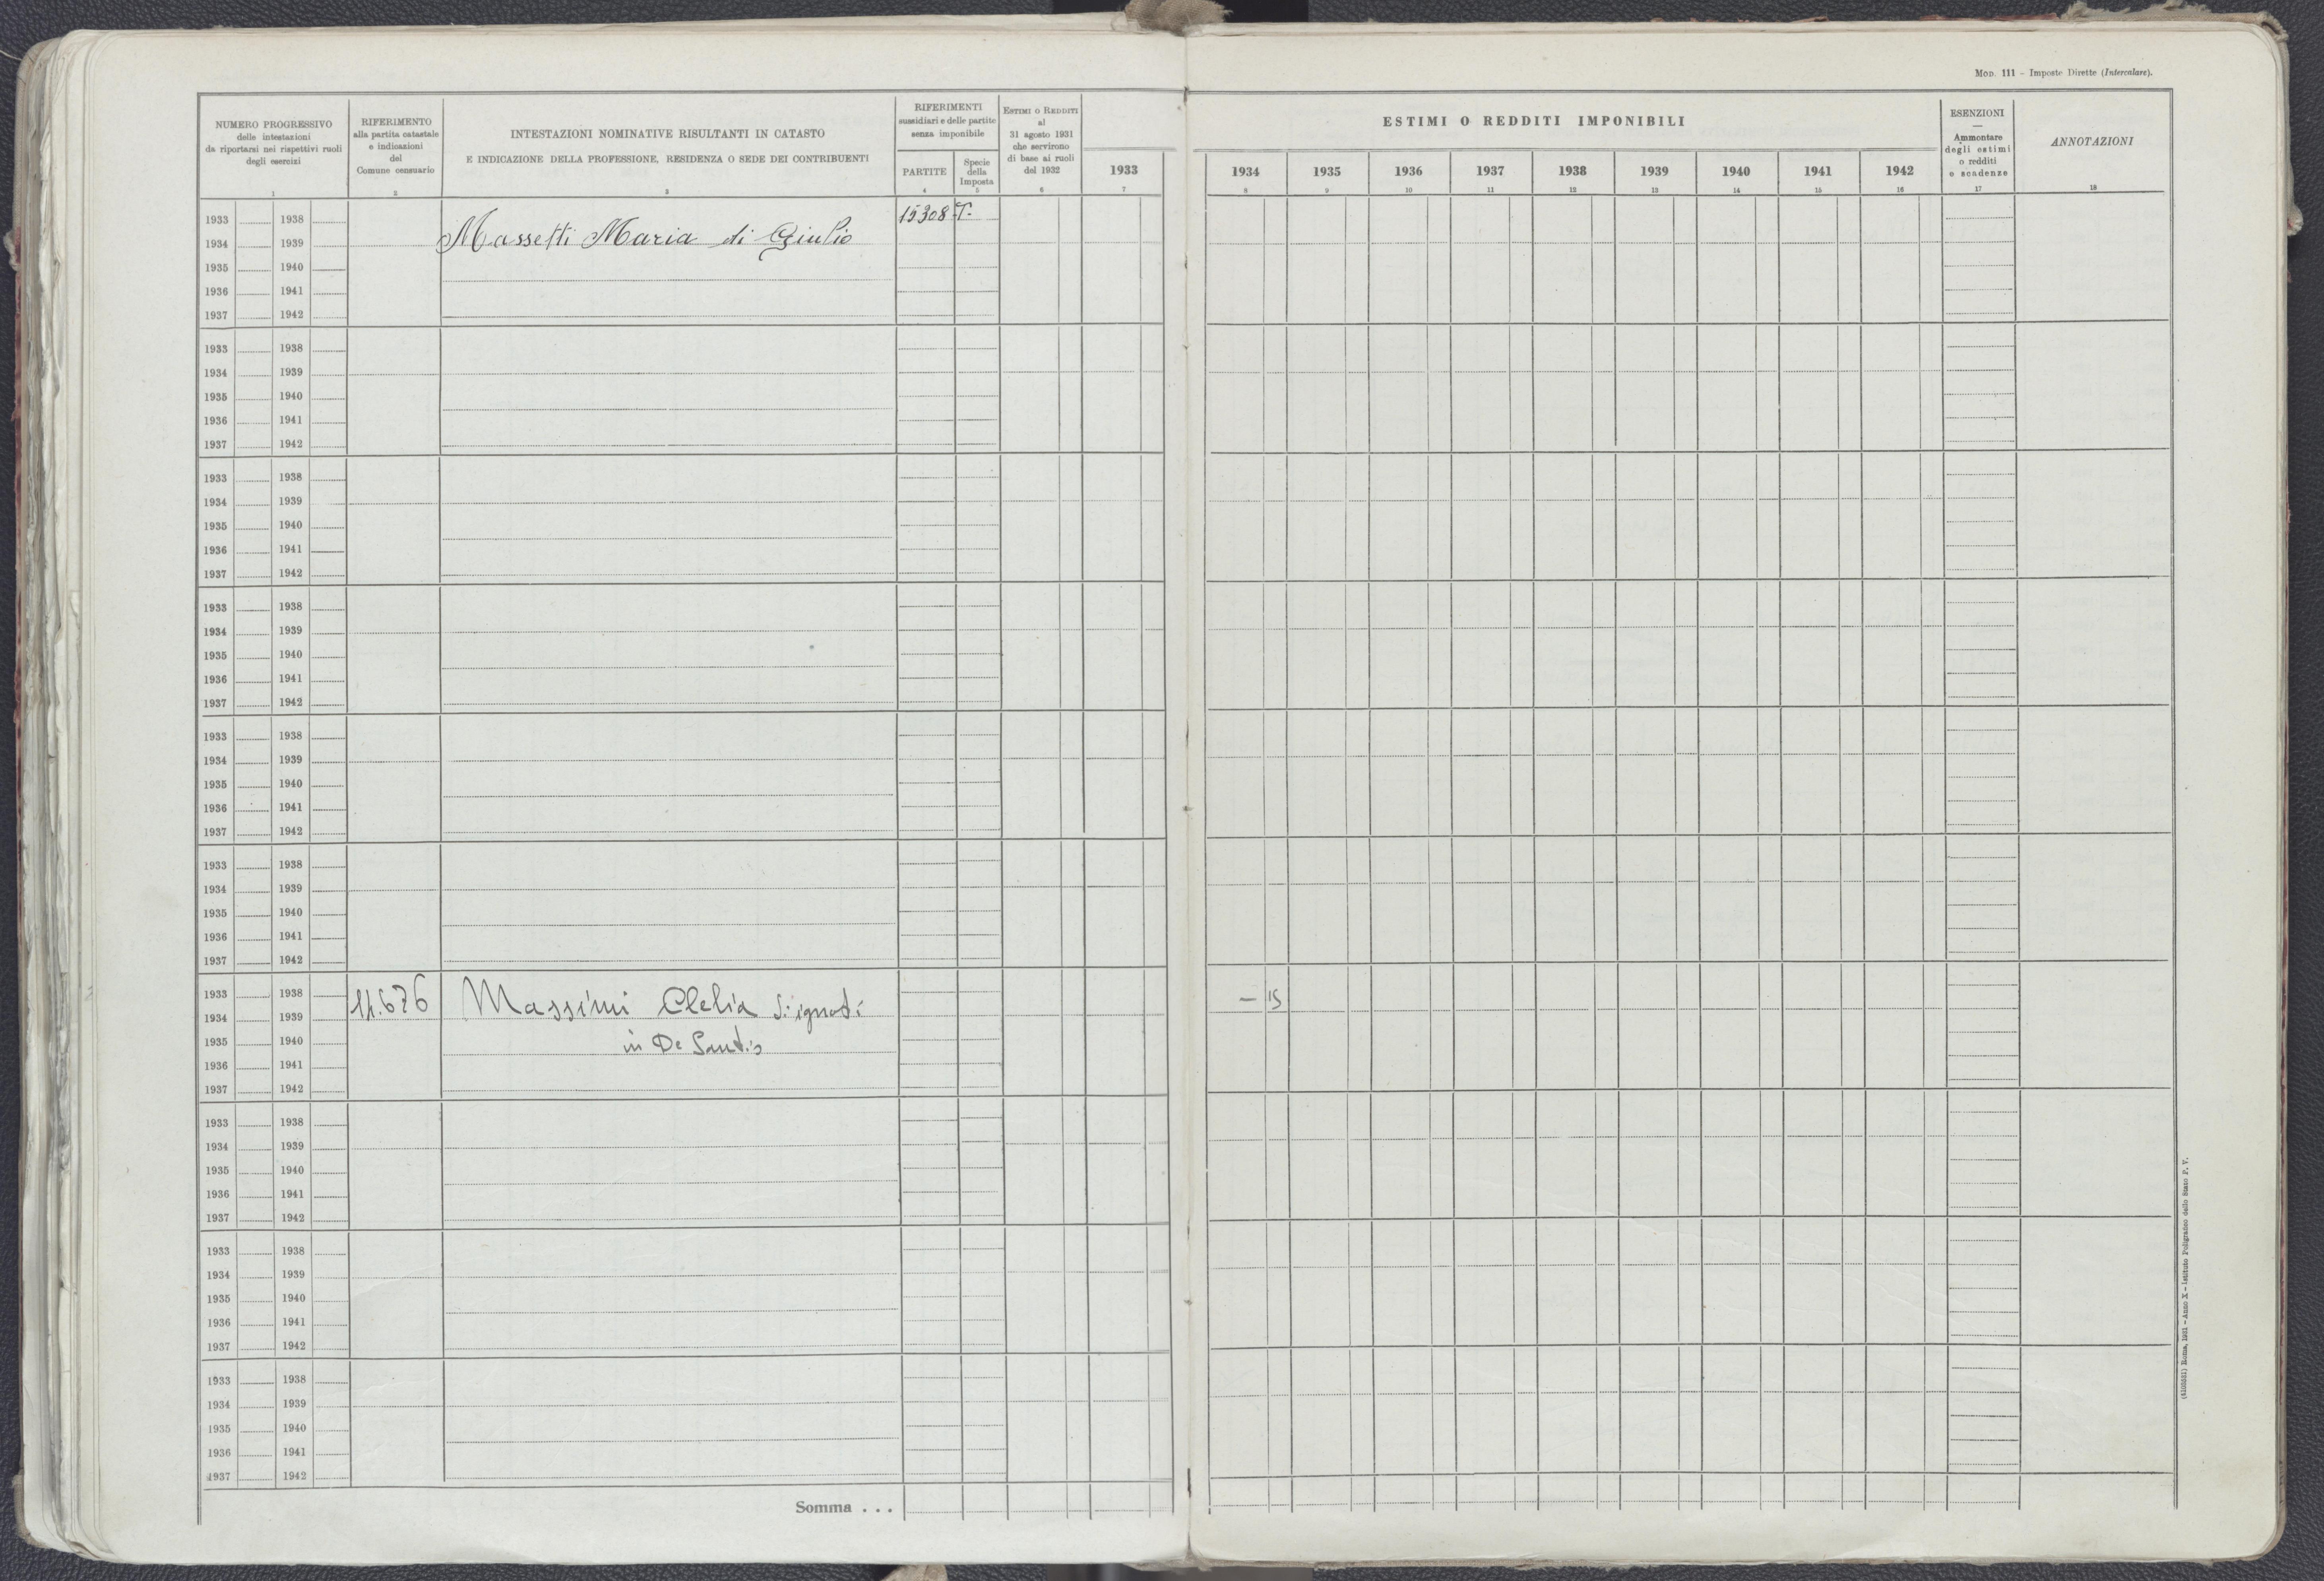 Mod. 111 – Imposte Dirette (Intercalare).
NUMERO PROGRESSIVO
delle intestazioni
da riportarsi nei rispettivi ruoli
degli esercizi
1
RIFERIMENTO
alla partita catastale
e indicazioni
del
Comune censuario
2
INTESTAZIONI NOMINATIVE RISULTANTI IN CATASTO
E INDICAZIONE DELLA PROFESSIONE, RESIDENZA O SEDE DEI CONTRIBUENTI
3
RIFERIMENTI
sussidiari e delle partite
senza imponibile
PARTITE
4
Specie
della
Imposta
5
Estimi o Redditi
al
31 agosto 1931
che servirono
di base ai ruoli
del 1932
6
1933
7
ESTIMI O REDDITI IMPONIBILI
1934 1935 1936 1937 1938 1939 1940 1941 1942
8 9 10 11 12 13 14 15 16
ESENZIONI
—
Ammontare
degli estimi
o redditi
e scadenze
17
ANNOTAZIONI
18
1933 1938 15308 T.
1934 1939 Massetti Maria di Giulio
1935 1940
1936 1941
1937 1942
1933 1938
1934 1939
1935 1940
1936 1941
1937 1942
1933 1938
1934 1939
1935 1940
1936 1941
1937 1942
1933 1938
1934 1939
1935 1940
1936 1941
1937 1942
1933 1938
1934 1939
1935 1940
1936 1941
1937 1942
1933 1938
1934 1939
1935 1940
1936 1941
1937 1942
1933 1938
1934 1939 Massimi Clelia di ignoti — 15
1935 1940 in De Santis
1936 1941
1937 1942
1933 1938
1934 1939
1935 1940
1936 1941
1937 1942
1933 1938
1934 1939
1935 1940
1936 1941
1937 1942
1933 1938
1934 1939
1935 1940
1936 1941
1937 1942
Somma . . .
Roma, 1931 – Anno X – Istituto Poligrafico dello Stato P. V.